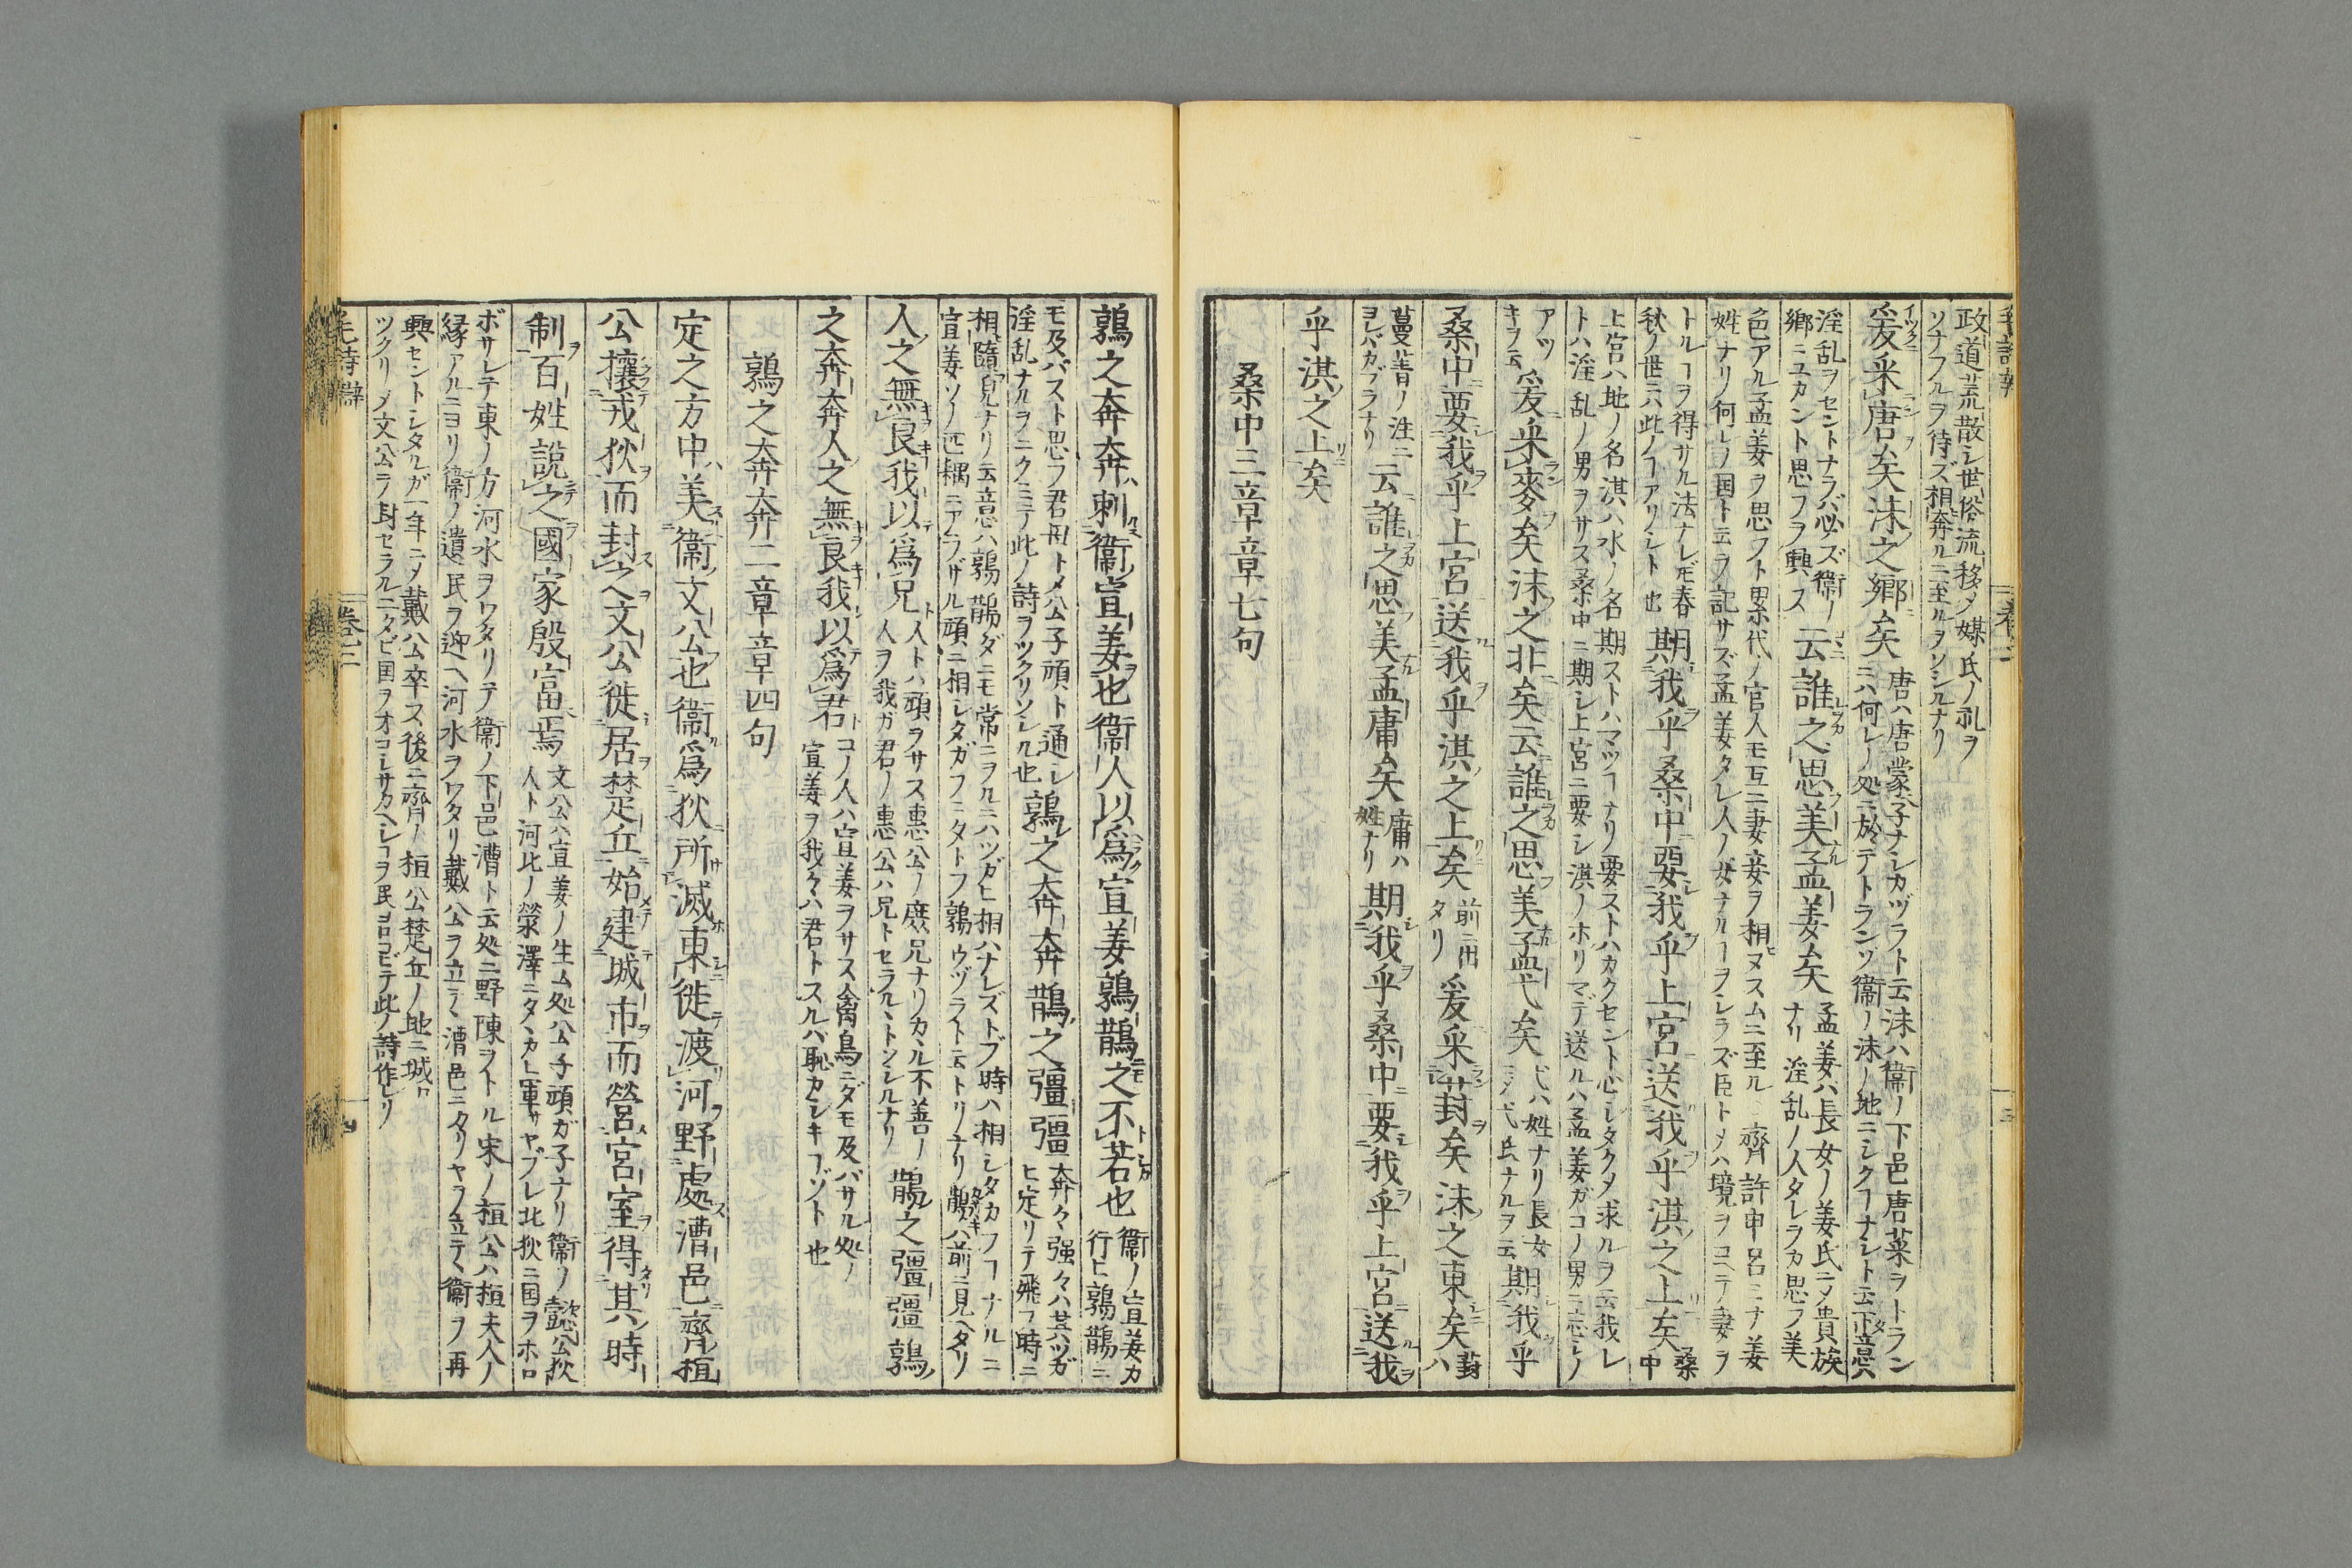 政道荒散シ世俗流移メ媒氏ノ礼ヲ
ソナフルヲ待ズ相奔ルニ至ルヲソシルナリ
爰采唐矣沬之鄉矣
唐ハ唐蒙子ナシカヅラト云沬ハ衞ノ下邑唐菜ヲトラン
ニハ何レノ処ニ於テトランゾ衞ノ沬ノ地ニシクヿナシト云下意ハ
淫乱ヲセントナラバ必ズ衞ノ
鄉ニユカント思フヲ興ス
云誰之思美孟姜矣
孟姜ハ長女ノ姜氏ニメ貴族
ナリ淫乱ノ人タレラカ思フ美
色アル孟姜ヲ思フト累代ノ官人モ互ニ妻妾ヲ相ヌスムニ至ル齊許申呂ミナ姜
姓ナリ何レノ国ト云ヲ記サズ孟姜タレ人ノ女ナルヿヲシラズ臣トメハ境ヲコヘテ妻ヲ
トルヿヲ得サル法ナレ𪜈春
秋ノ世ニハ此ノヿアリシト也
期我乎桑中要我乎上宮送我乎淇之上矣
桑
中
上宮ハ地ノ名淇ハ水ノ名期ストハマツヿナリ要ストハカクセント心シタクメ求ルヲ云我レ
トハ淫乱ノ男ヲサス桑中ニ期シ上宮ニ要シ淇ノホリマデ送ルハ孟姜ガコノ男ニ志シノ
アツ
キヲ云
爰采麥矣沬之北矣云誰之思美孟弋矣
弋ハ姓ナリ長女
ニメ弋氏ナルヲ云
期我乎
桑中要我乎上宮送我乎淇之上矣
前ニ出
タリ
爰采葑矣沬之東矣
葑
ハ
蔓菁ノ注ニ
ヨレバカブラナリ
云誰之思美孟庸矣
庸ハ
姓ナリ
期我乎桑中要我乎上宮送我
乎淇之上矣
桑中三章章七句
鶉之奔奔刺衞宣姜也衞人以爲宣姜鶉鵲之不若也
衞ノ宣姜カ
行ヒ鶉鵲ニ
モ及バスト思フ君母トメ公子頑ト通シ
淫乱ナルヲニクミテ此ノ詩ヲツクリソシル也
鶉之奔奔鵲之彊彊
奔々强々ハ其ツガ
ヒ定リテ飛フ時ニ
相隨皃ナリ云意ハ鶉鵲ダニモ常ニヲルニハツガヒ相ハナレズトブ時ハ相シタカフヿナルニ
宣姜ソノ匹耦ニアラザル頑ニ相シタガフニタトフ鶉ウヅラト云トリナリ鵲ハ前ニ見ヘタリ
人之無良我以爲兄
人トハ頑ヲサス惠公ノ庶兄ナリカヽル不善ノ
人ヲ我ガ君ノ惠公ハ兄トセラルヽトソシルナリ
鵲之彊彊鶉
之奔奔人之無良我以爲君
コノ人ハ宣姜ヲサス禽鳥ニダモ及バサル処ノ
宣姜ヲ我々ハ君トスルハ恥カシキヿゾト也
鶉之奔奔二章章四句
定之方中美衞文公也衞爲狄所滅東徙渡河野處漕邑齊桓
公攘戎狄而封之文公徙居楚丘始建城市而營宮室得其時
制百姓說之國家殷富焉
文公ハ宣姜ノ生ム処公子頑ガ子ナリ衞ノ懿公狄
人ト河北ノ滎澤ニタヽカヒ軍サヤブレ北狄ニ国ヲホロ
ボサレテ東ノ方河水ヲワタリテ衞ノ下邑漕ト云処ニ野陳ヲトル宋ノ桓公ハ桓夫人ノ
縁アルニヨリ衞ノ遺民ヲ迎ヘ河水ヲワタリ戴公ヲ立テヽ漕邑ニタリヤヲ立テヽ衞ヲ再
興セントシタルガ一年ニメ戴公卒ス後ニ齊ノ桓公楚丘ノ地ニ城
ツクリメ文公ヲ封セラルニタビ国ヲオコシサカヘシヿヲ民ヨロコビテ此ノ詩作レリ
毛詩辯
卷三